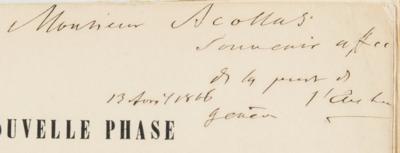 Monsieur Acollas
Souvenir aff
de la part de
13 Avril 1866 l'auteur
genève
OUVELLE PHASE